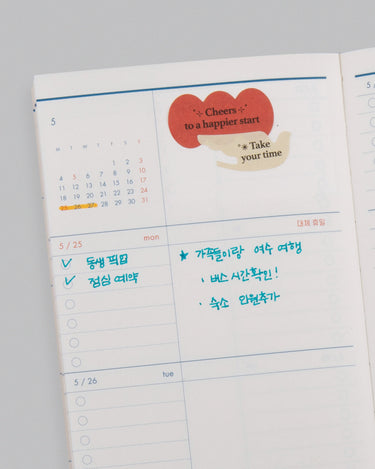 Cheers
to a happier start
Take
your time
5
M T W T F S S
1 2 3
4 5 6 7 8 9 10
11 12 13 14 15 16 17
18 19 20 21 22 23 24
25 26 27 28 29 30 31
5 / 25 mon
대체 휴일
✓ 동생 픽업
✓ 점심 예약
★ 가족들이랑 여수 여행
· 버스 시간확인!
· 숙소 인원추가
5 / 26 tue